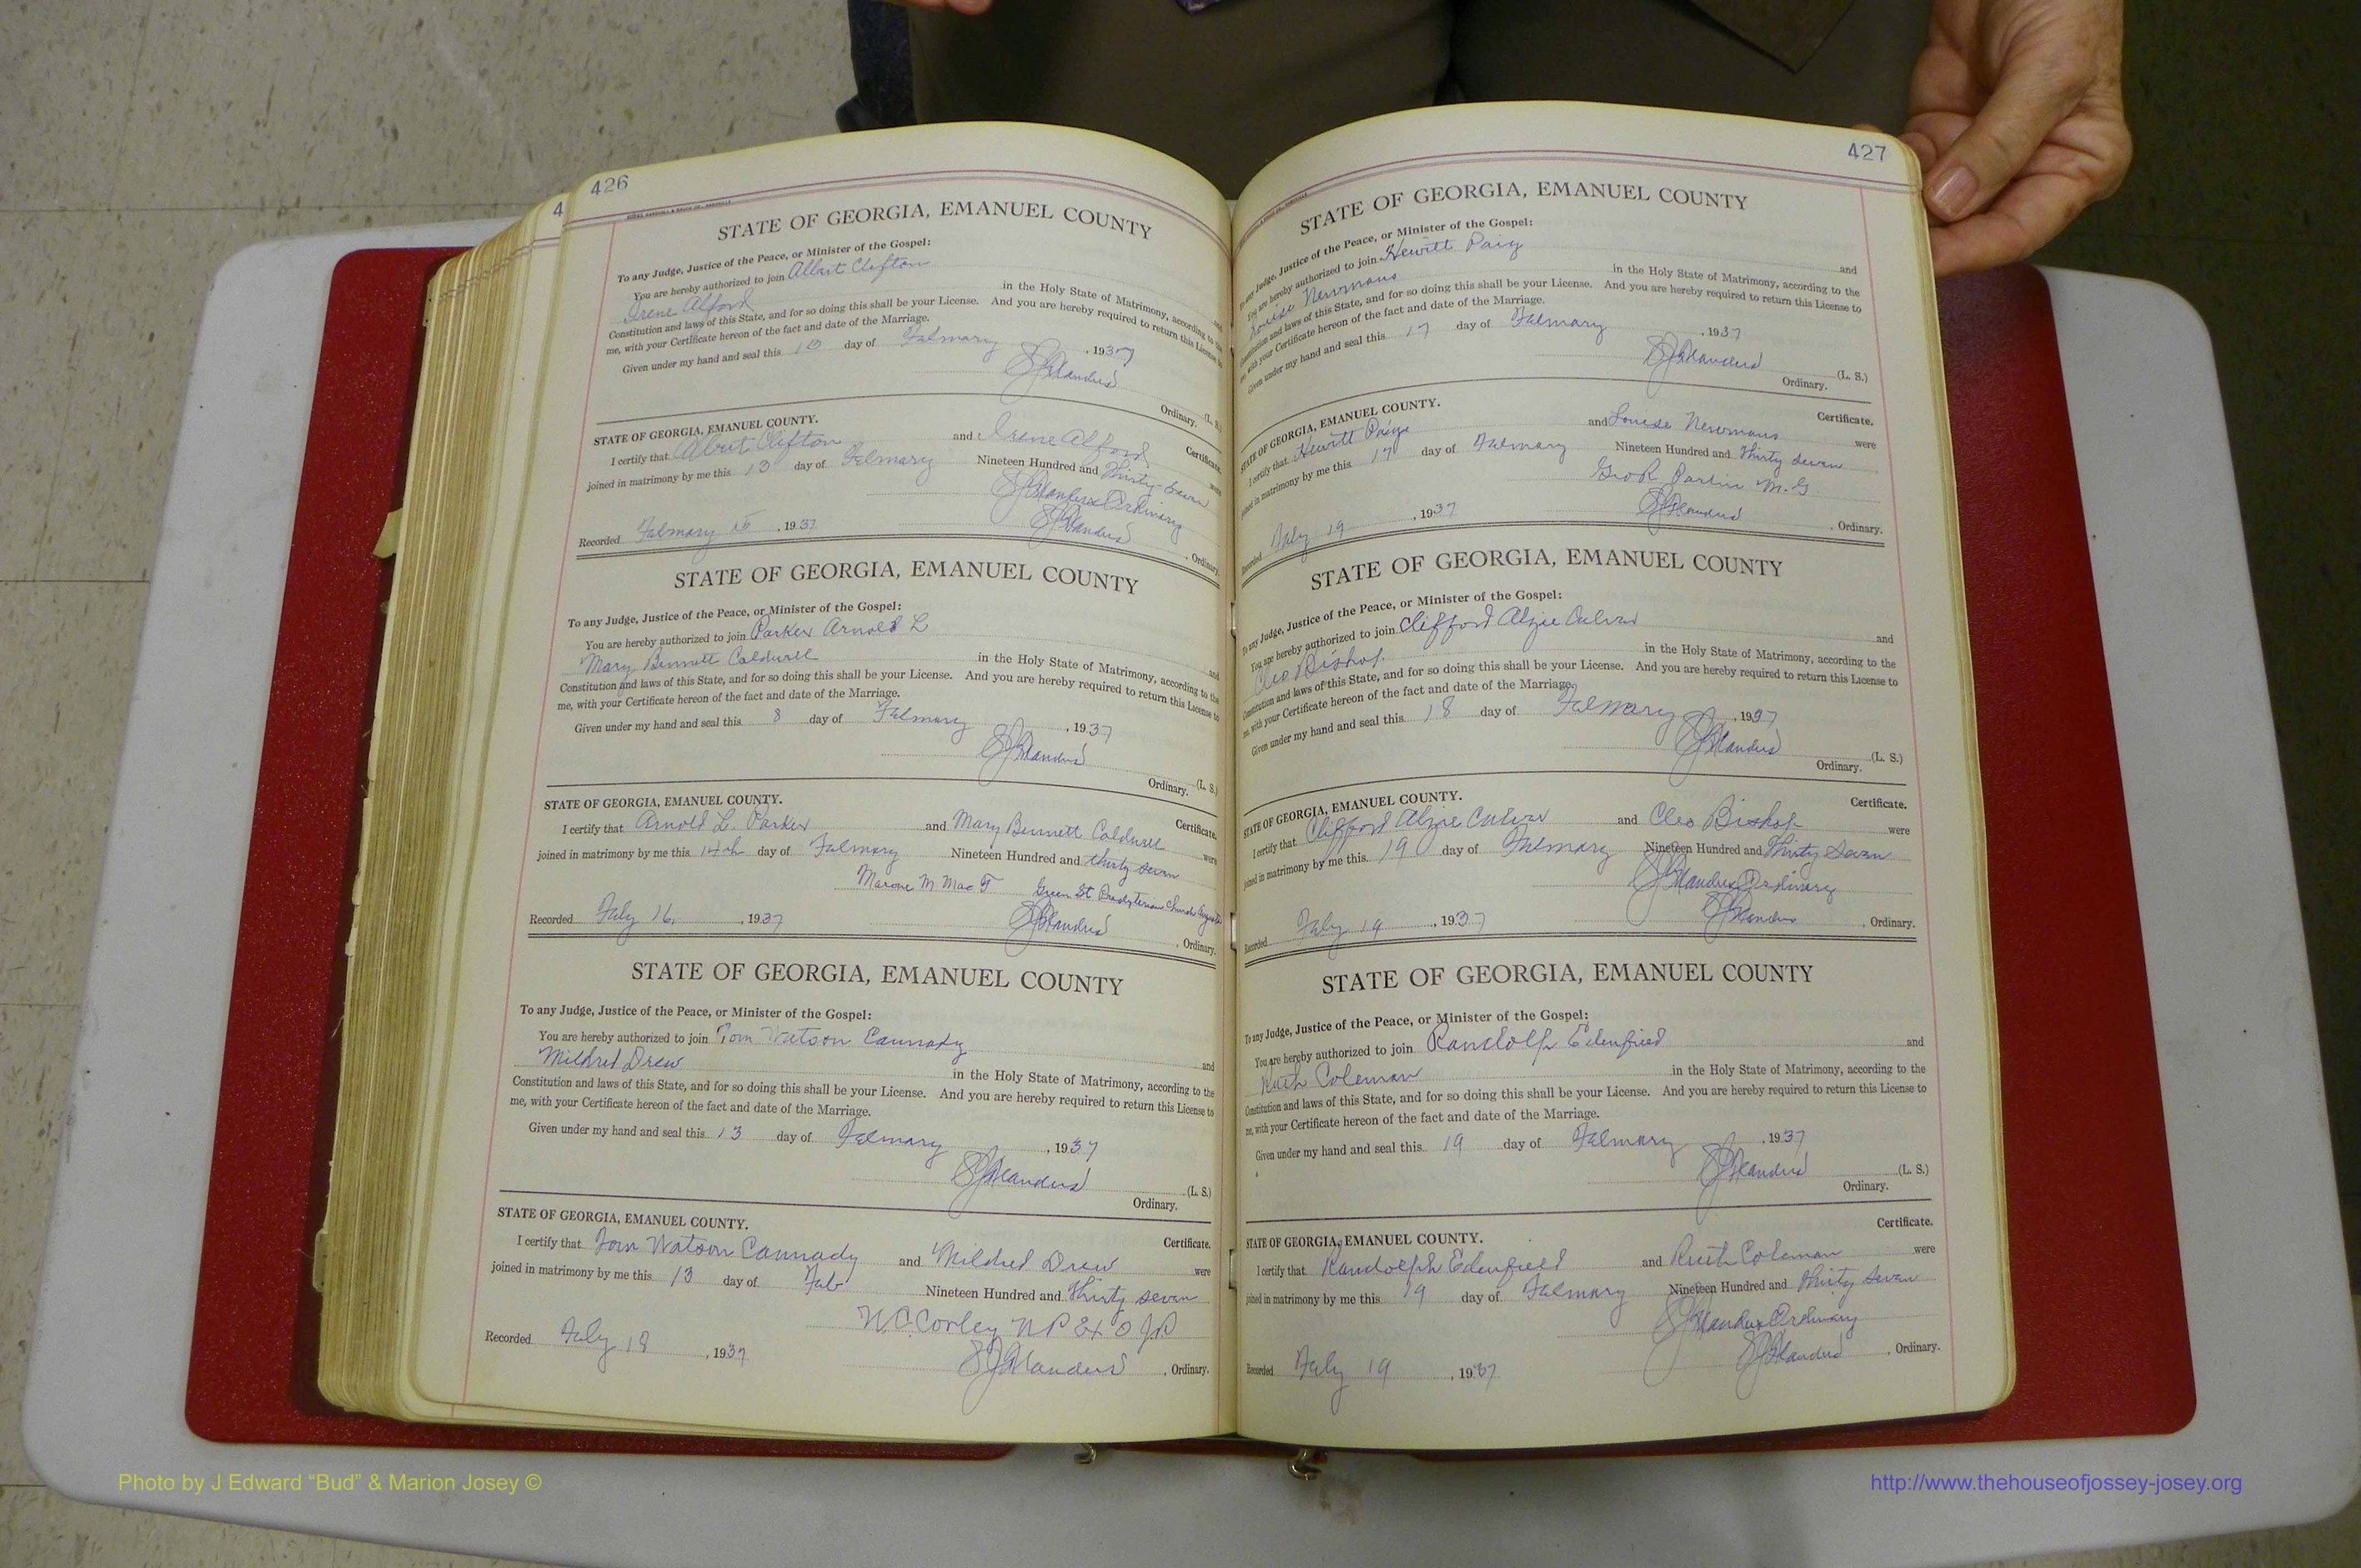 426
STATE OF GEORGIA, EMANUEL COUNTY
To any Judge, Justice of the Peace, or Minister of the Gospel:
You are hereby authorized to join Albert Clifton
and
Irene Alford in the Holy State of Matrimony, according to the
Constitution and laws of this State, and for so doing this shall be your License. And you are hereby required to return this License to
me, with your Certificate hereon of the fact and date of the Marriage.
Given under my hand and seal this day of February , 1937
(L. S.)
Ordinary.
STATE OF GEORGIA, EMANUEL COUNTY. Certificate.
I certify that Albert Clifton and Irene Alford were
joined in matrimony by me this 13 day of February Nineteen Hundred and Thirty-Seven
Ordinary
Recorded February 15 , 1937 , Ordinary.
STATE OF GEORGIA, EMANUEL COUNTY
To any Judge, Justice of the Peace, or Minister of the Gospel:
You are hereby authorized to join Parker Arnold L
and
Mary Bennett Coldwell in the Holy State of Matrimony, according to the
Constitution and laws of this State, and for so doing this shall be your License. And you are hereby required to return this License to
me, with your Certificate hereon of the fact and date of the Marriage.
Given under my hand and seal this 8 day of February , 1937
(L. S.)
Ordinary.
STATE OF GEORGIA, EMANUEL COUNTY. Certificate.
I certify that Arnold L. Parker and Mary Bennett Coldwell were
joined in matrimony by me this 14th day of February Nineteen Hundred and thirty seven
Green St. Presbyterian Church
Recorded Feby 16, , 1937 , Ordinary.
STATE OF GEORGIA, EMANUEL COUNTY
To any Judge, Justice of the Peace, or Minister of the Gospel:
You are hereby authorized to join Tom Watson Cannady
and
Mildred Drew in the Holy State of Matrimony, according to the
Constitution and laws of this State, and for so doing this shall be your License. And you are hereby required to return this License to
me, with your Certificate hereon of the fact and date of the Marriage.
Given under my hand and seal this 13 day of February , 1937
(L. S.)
Ordinary.
STATE OF GEORGIA, EMANUEL COUNTY. Certificate.
I certify that Tom Watson Cannady and Mildred Drew were
joined in matrimony by me this 13 day of Feb Nineteen Hundred and Thirty seven
N.C. Corley N P Ex O J P
Recorded Feby 18 , 1937 , Ordinary.
427
STATE OF GEORGIA, EMANUEL COUNTY
To any Judge, Justice of the Peace, or Minister of the Gospel:
You are hereby authorized to join Hewitt Paig
and
Louise Newmans in the Holy State of Matrimony, according to the
Constitution and laws of this State, and for so doing this shall be your License. And you are hereby required to return this License to
me, with your Certificate hereon of the fact and date of the Marriage.
Given under my hand and seal this 17 day of February , 1937
(L. S.)
Ordinary.
STATE OF GEORGIA, EMANUEL COUNTY. Certificate.
I certify that Hewitt Paige and Louise Newmans were
joined in matrimony by me this 17 day of February Nineteen Hundred and Thirty seven
Geo R. M. G.
Recorded Feby 19 , 1937 , Ordinary.
STATE OF GEORGIA, EMANUEL COUNTY
To any Judge, Justice of the Peace, or Minister of the Gospel:
You are hereby authorized to join Clifford Culver
and
Cleo Bishop in the Holy State of Matrimony, according to the
Constitution and laws of this State, and for so doing this shall be your License. And you are hereby required to return this License to
me, with your Certificate hereon of the fact and date of the Marriage.
Given under my hand and seal this 18 day of February , 1937
(L. S.)
Ordinary.
STATE OF GEORGIA, EMANUEL COUNTY. Certificate.
I certify that Clifford Culver and Cleo Bishop were
joined in matrimony by me this 19 day of February Nineteen Hundred and Thirty Seven
Ordinary
Recorded Feby 19 , 1937 , Ordinary.
STATE OF GEORGIA, EMANUEL COUNTY
To any Judge, Justice of the Peace, or Minister of the Gospel:
You are hereby authorized to join Randolph Edenfield
and
Ruth Coleman in the Holy State of Matrimony, according to the
Constitution and laws of this State, and for so doing this shall be your License. And you are hereby required to return this License to
me, with your Certificate hereon of the fact and date of the Marriage.
Given under my hand and seal this 19 day of February , 1937
(L. S.)
Ordinary.
STATE OF GEORGIA, EMANUEL COUNTY. Certificate.
I certify that Randolph Edenfield and Ruth Coleman were
joined in matrimony by me this 19 day of February Nineteen Hundred and Thirty Seven
Ordinary
Recorded Feby 19 , 1937 , Ordinary.
Photo by J Edward “Bud” & Marion Josey ©
http://www.thehouseofjossey-josey.org